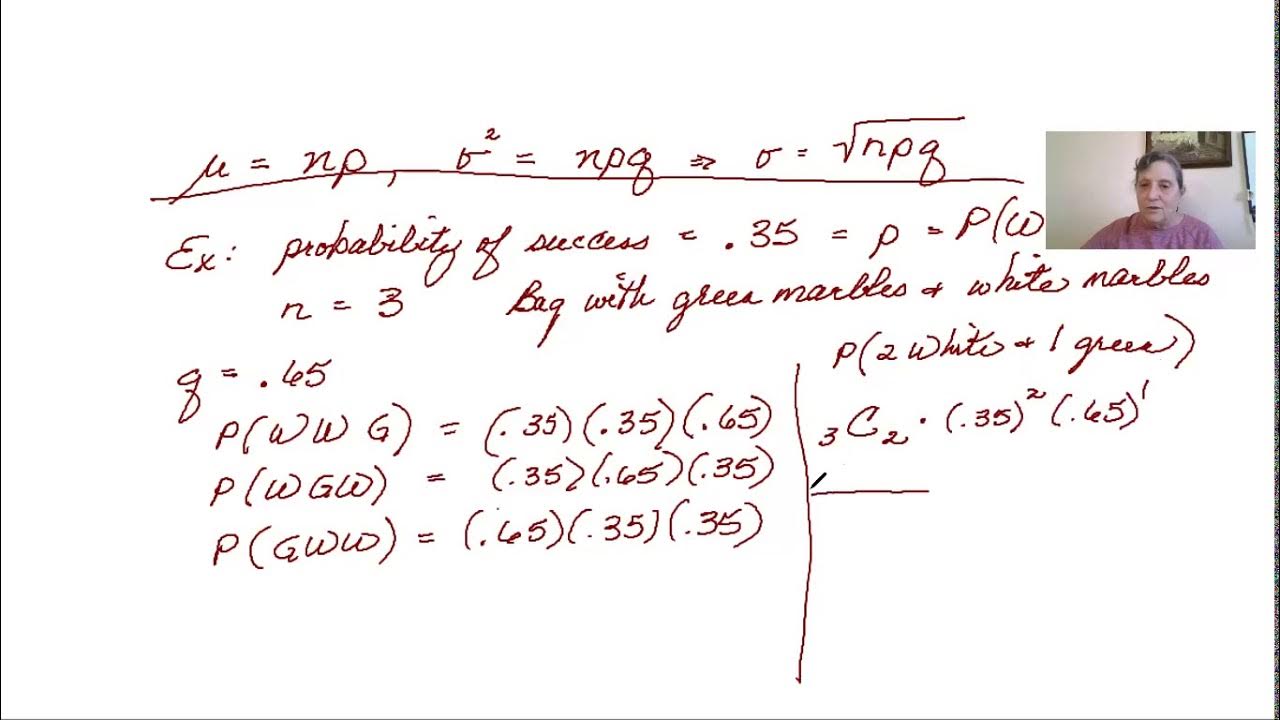 μ = np, σ² = npq ⇒ σ = √npq
Ex: probability of success = .35 = p = P(W
n = 3 Bag with green marbles & white marbles
P(2 White & 1 green)
q = .65
₃C₂ · (.35)² (.65)¹
P(WWG) = (.35)(.35)(.65)
P(WGW) = (.35)(.65)(.35)
P(GWW) = (.65)(.35)(.35)